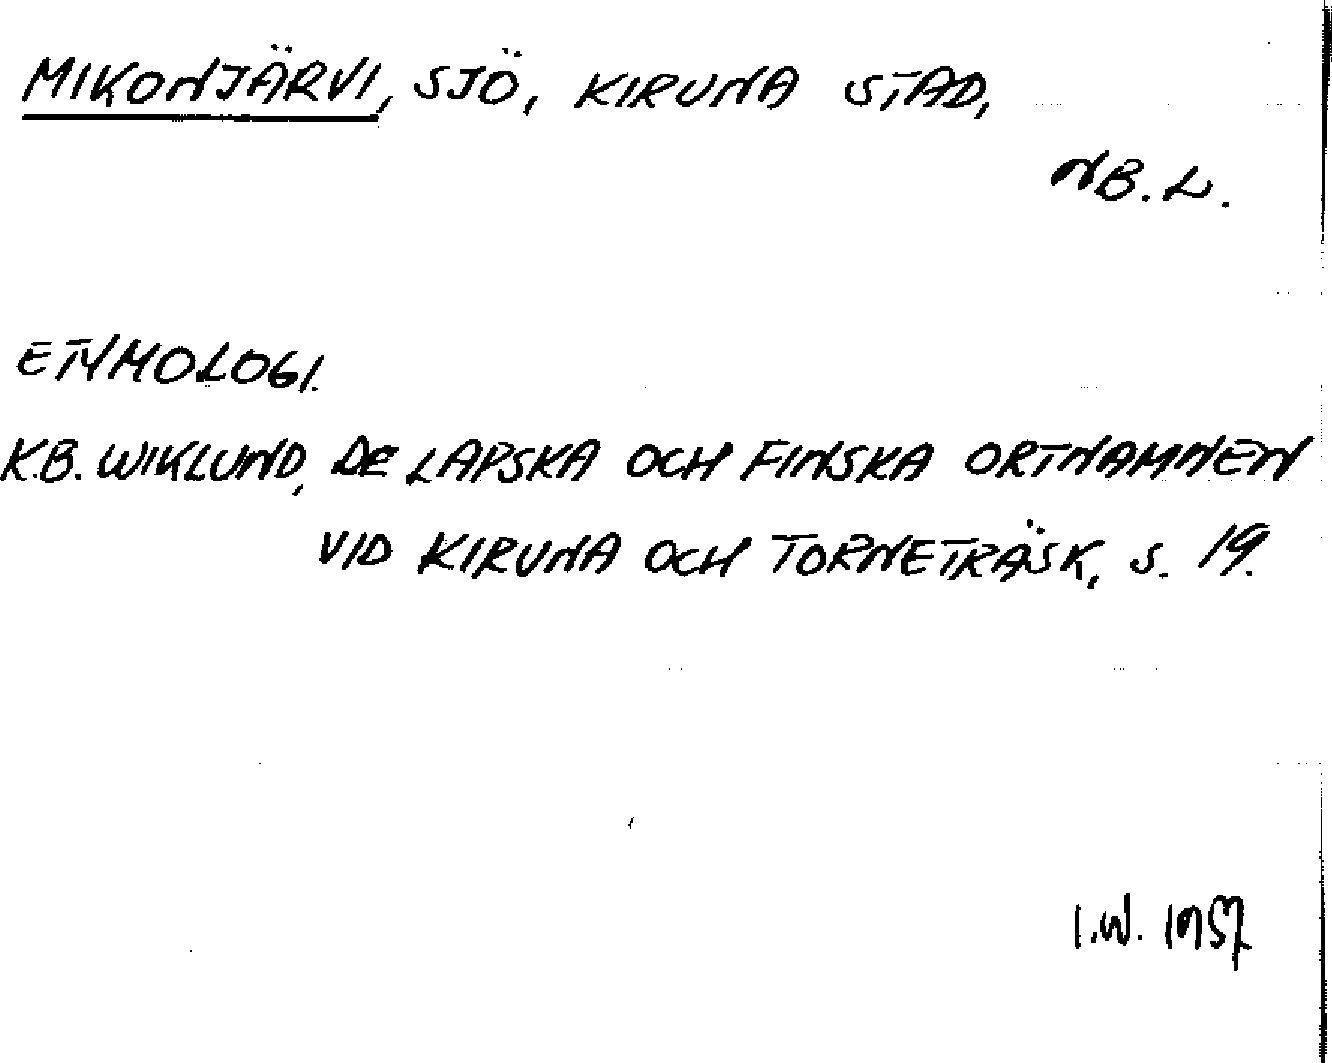 MIKONJÄRVI, SJÖ, KIRUNA STAD,
NB. L.
ETYMOLOGI.
K.B. WIKLUND, DE LAPSKA OCH FINSKA ORTNAMNEN
VID KIRUNA OCH TORNETRÄSK, S. 19.
I.W. 1957